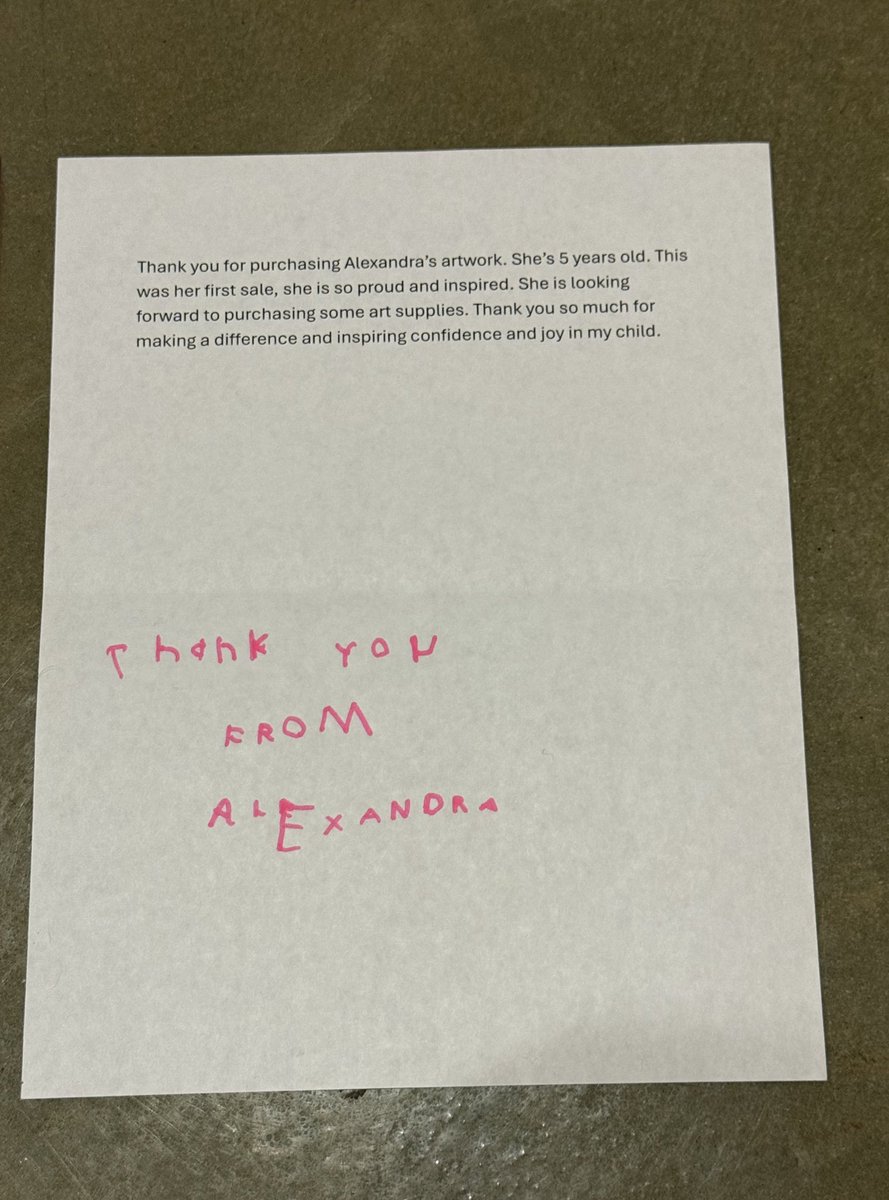 Thank you for purchasing Alexandra’s artwork. She’s 5 years old. This
was her first sale, she is so proud and inspired. She is looking
forward to purchasing some art supplies. Thank you so much for
making a difference and inspiring confidence and joy in my child.
Thank YOU
FROM
ALEXANDRA